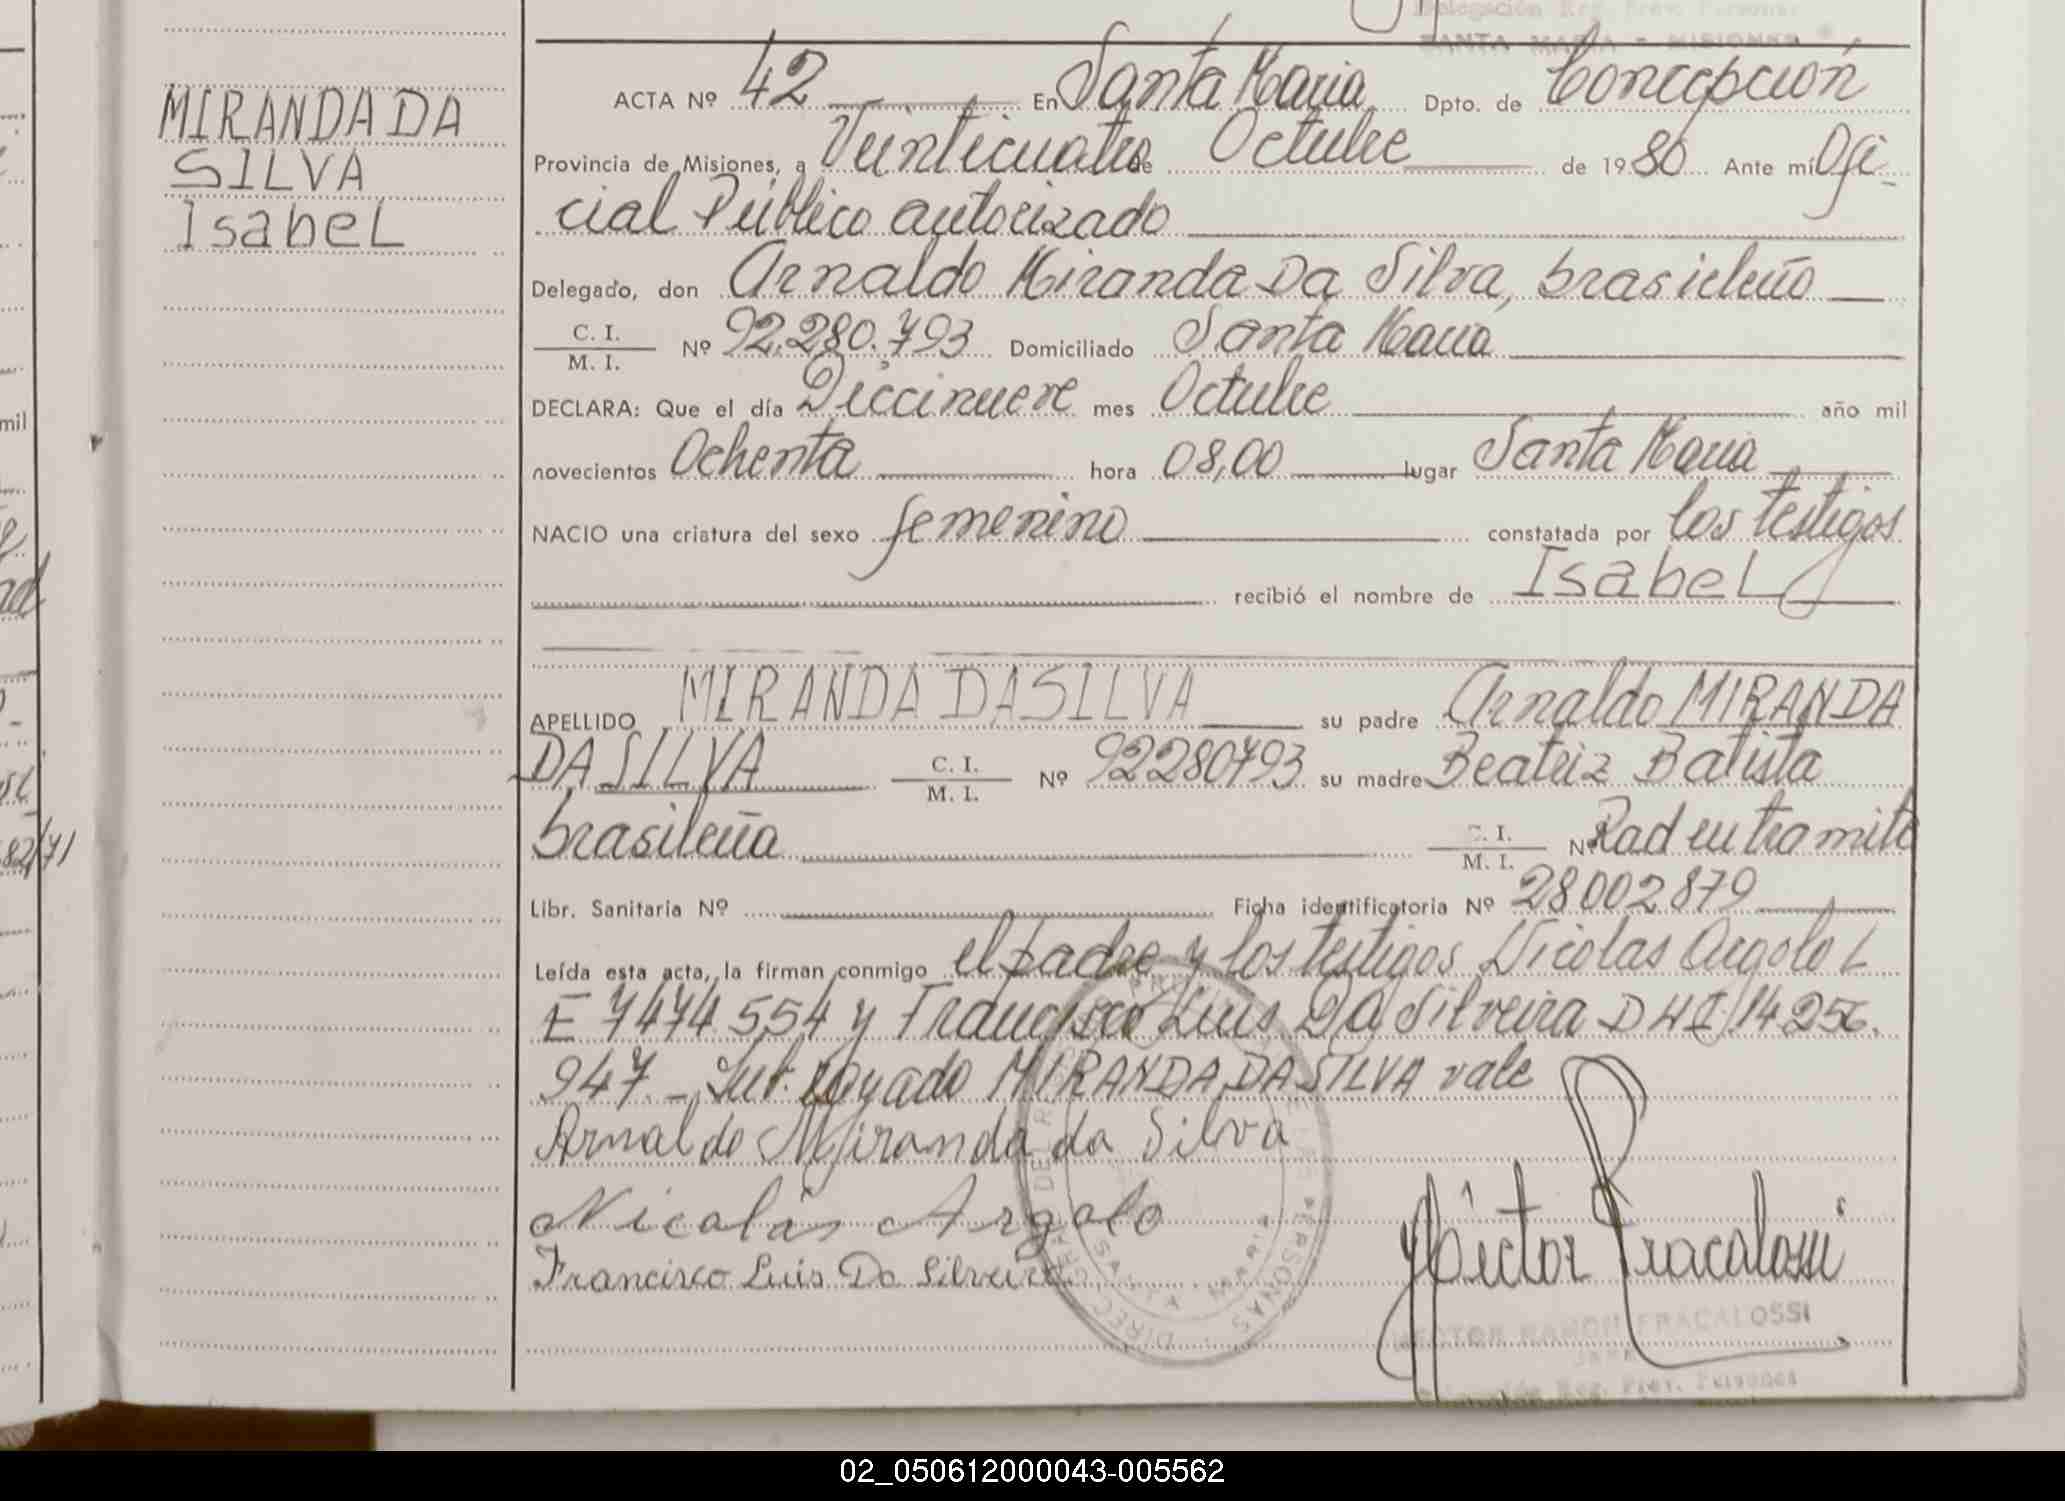 Delegación Reg. Prov. Personas
SANTA MARIA - MISIONES
MIRANDA DA
SILVA
IsabeL
ACTA Nº 42 En Santa Maria Dpto. de Concepción
Provincia de Misiones, a Veinticuatro de Octubre de 1980 Ante mí Ofi
cial Público autorizado
Delegado, don Arnaldo Miranda Da Silva, brasileño
C. I.
M. I. Nº 92.280.793 Domiciliado Santa Maria
DECLARA: Que el día Diecinueve mes Octubre año mil
novecientos Ochenta hora 08,00 lugar Santa Maria
NACIO una criatura del sexo femenino constatada por los testigos
recibió el nombre de IsabeL
APELLIDO MIRANDA DA SILVA su padre Arnaldo MIRANDA
DA SILVA C. I. M. I. Nº 92280793 su madre Beatriz Batista
brasileña C. I. M. I. Nº Rad en tramite
Libr. Sanitaria Nº Ficha identificatoria Nº 28002879
Leída esta acta, la firman conmigo el padre y los testigos Nicolas Argolo L
E 7474.554 y Francisco Luis Da Silveira DNI 14256.
947.- MIRANDA DA SILVA vale
Arnaldo Miranda da Silva
Nicolás Argolo
Francisco Luis Da Silveira
Héctor Fracalossi
HECTOR RAMON FRACALOSSI
JEFE
Delegación Reg. Prov. Personas
mil
82/71
02_050612000043-005562